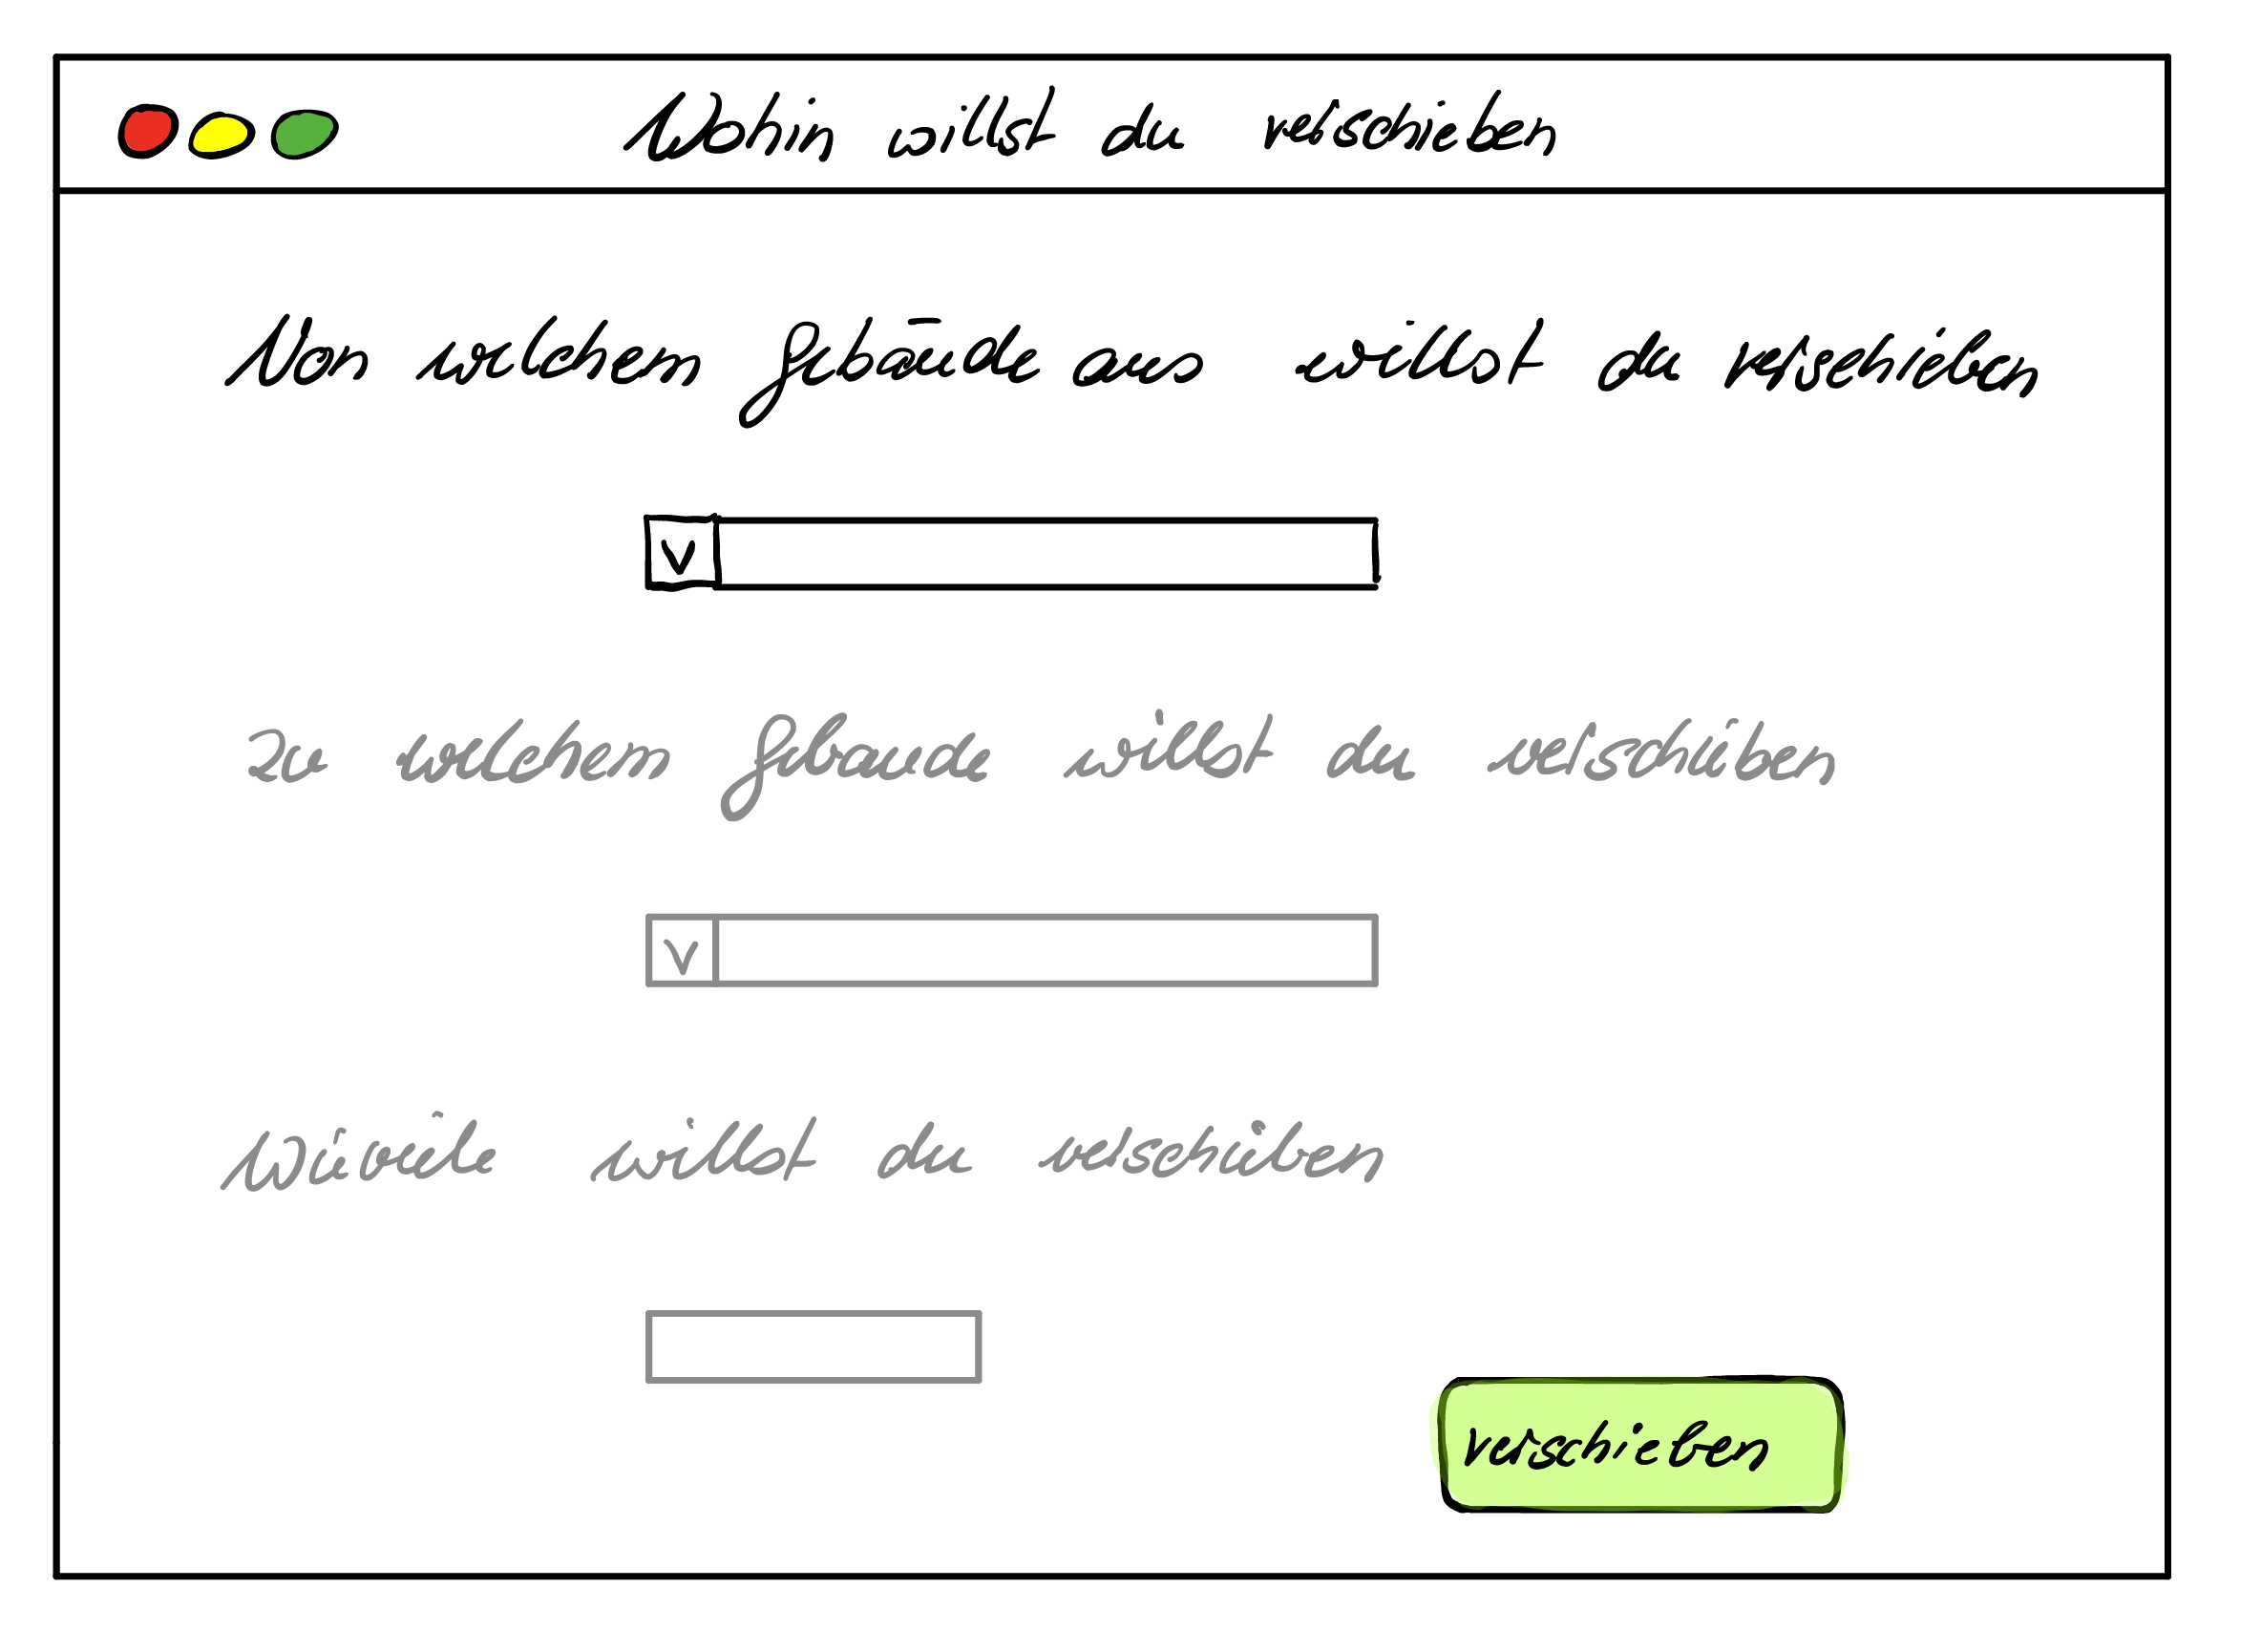 Wohin willst du verschieben
Von welchem Gebäude aus willst du verschieben
Zu welchem Gebäude willst du verschieben
Wieviele willst du verschieben
verschieben